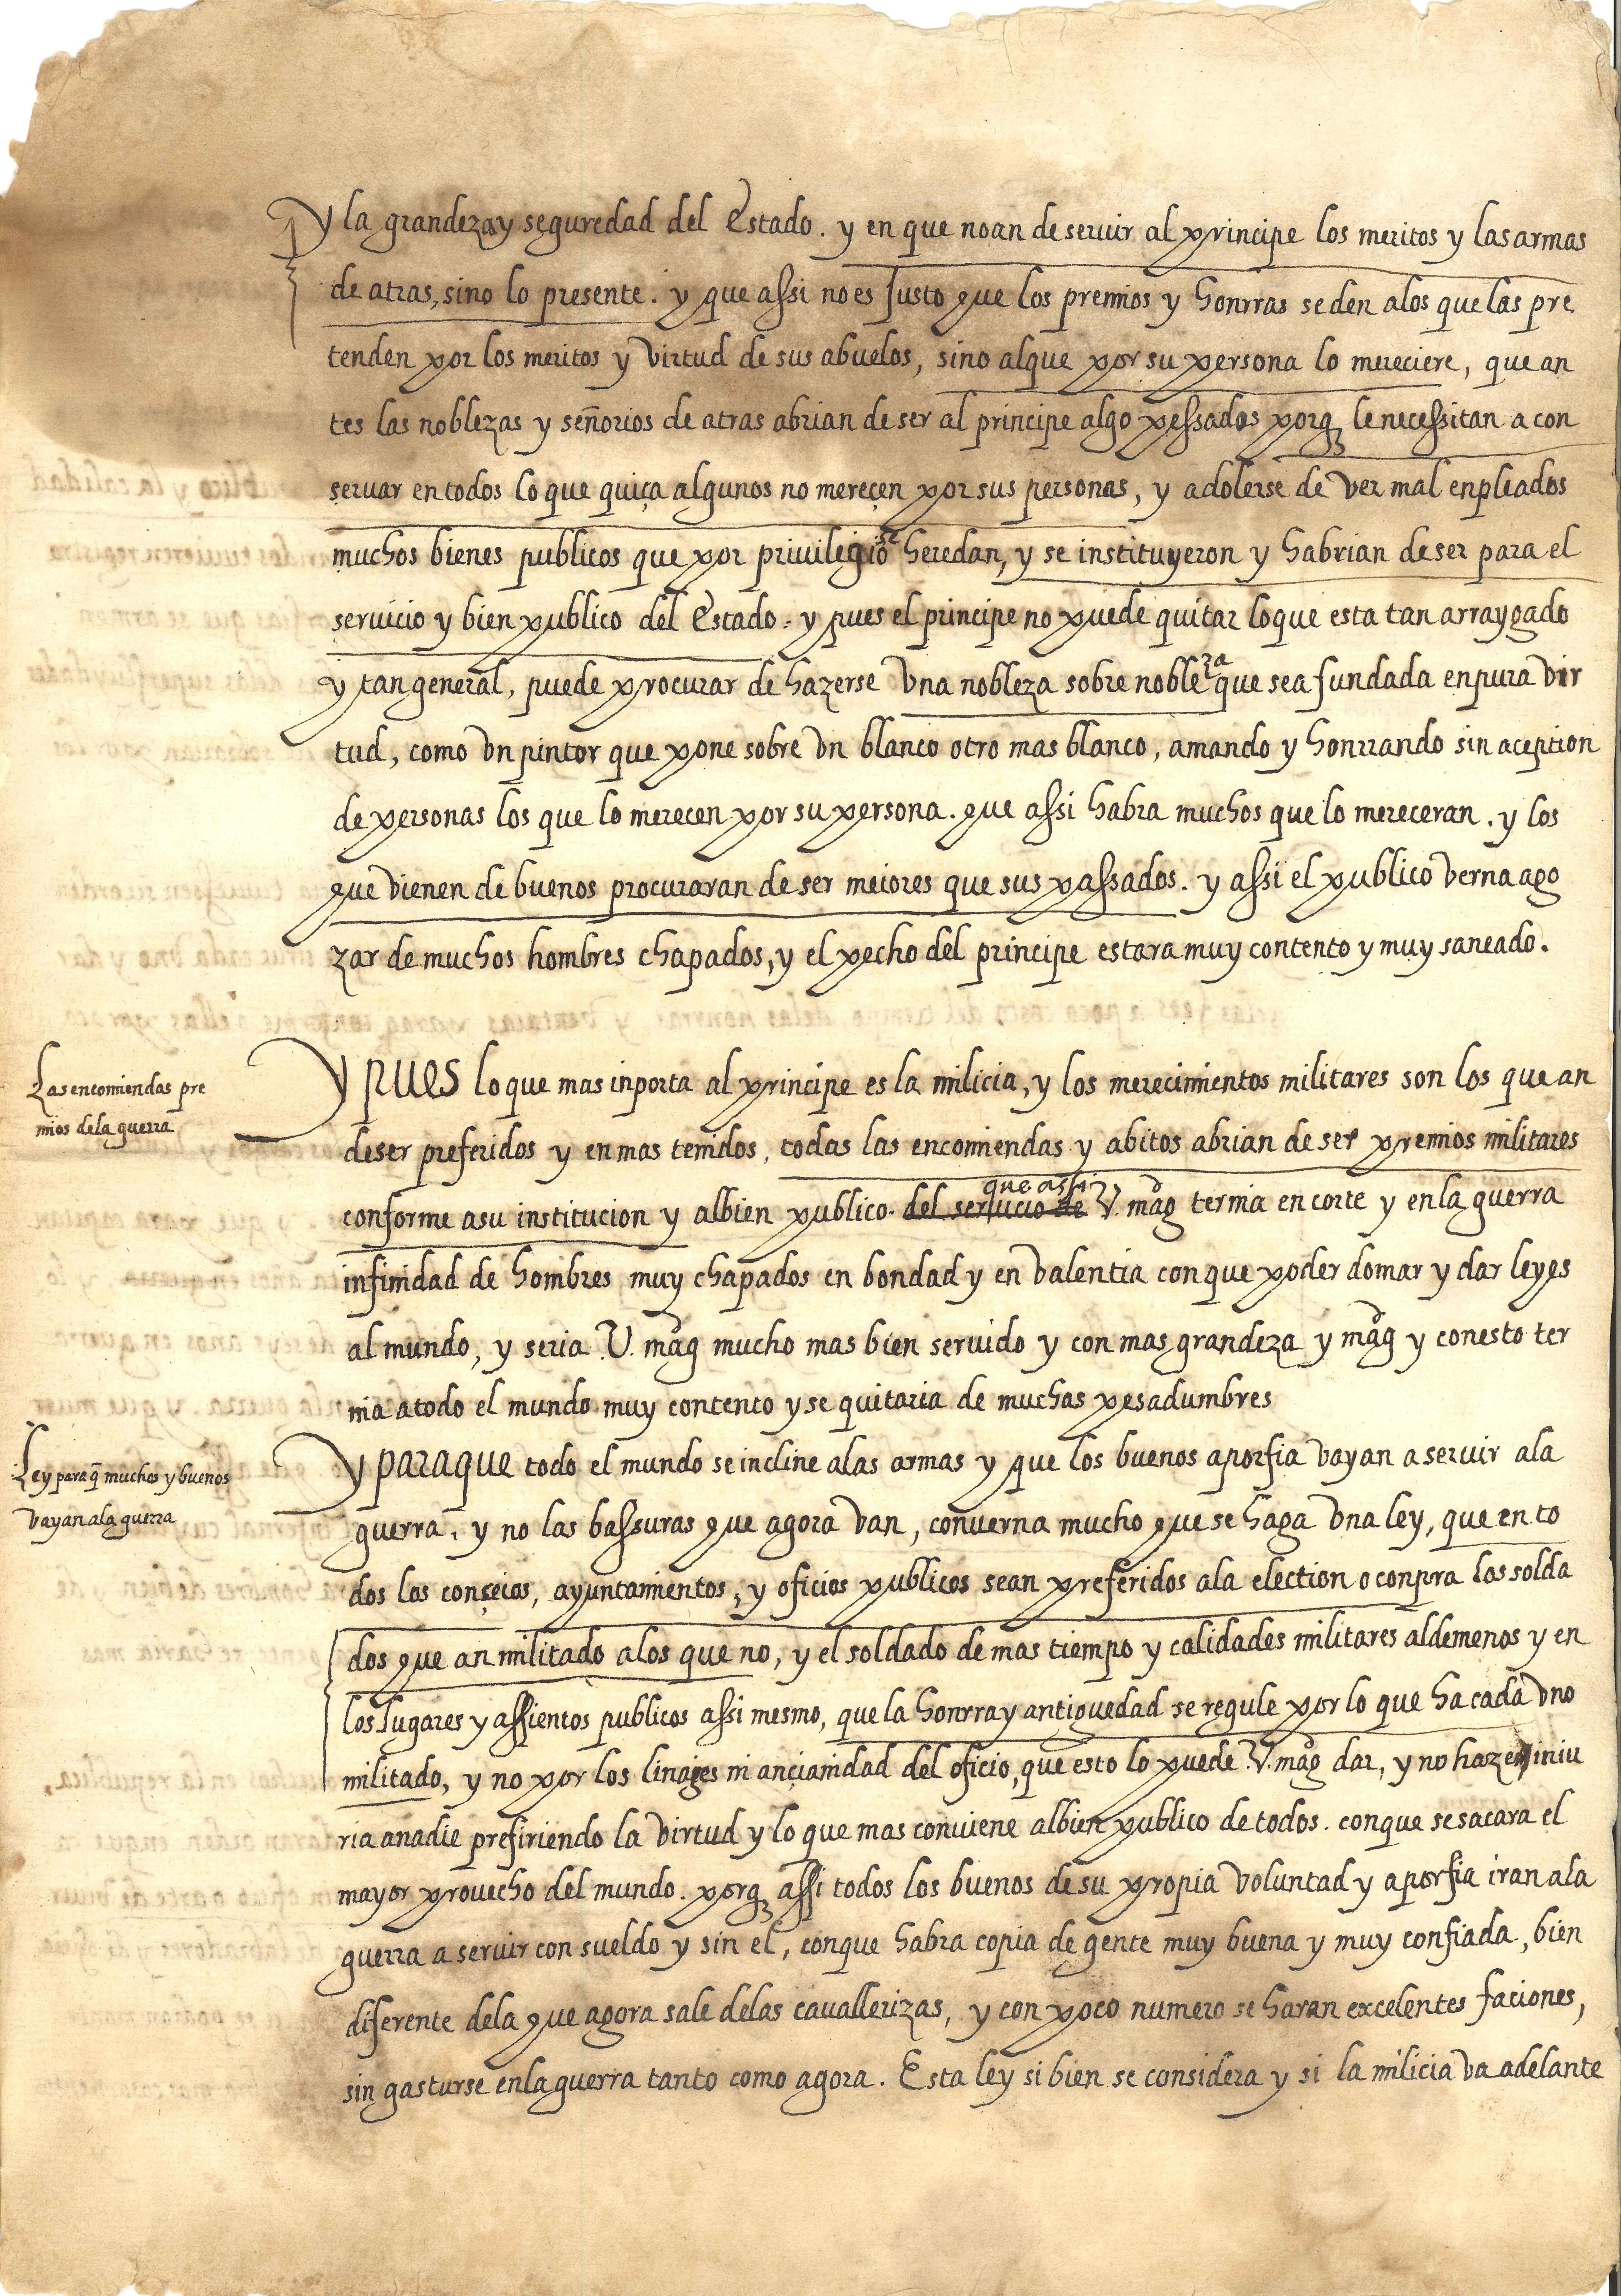 y la grandeza y seguredad del Estado. y en que no an de seruir al principe los meritos y las armas
de atras, sino lo presente. y que assi no es Justo que los premios y honrras se den a los que las pre
tenden por los meritos y virtud de sus abuelos, sino al que por su persona lo mereciere, que an
tes las noblezas y señorios de atras abrian de ser al principe algo pessados porq̃ le necessitan a con
seruar en todos lo que quiça algunos no mereçen por sus personas, y a dolerse de ver mal enpleados
muchos bienes publicos que por priuilegio se heredan, y se instituyeron y habrian de ser para el
seruicio y bien publico del Estado. y pues el principe no puede quitar lo que esta tan arraygado
y tan general, puede procurar de hazerse vna nobleza sobre nobleza que sea fundada en pura vir
tud, como vn pintor que pone sobre vn blanco otro mas blanco, amando y honrrando sin aception
de personas los que lo merecen por su persona. que assi habra muchos que lo mereceran. y los
que vienen de buenos procuraran de ser meiores que sus passados. y assi el publico verna a go
zar de muchos hombres chapados, y el pecho del principe estara muy contento y muy saneado.
Las encomiendas pre
mios de la guerra
y pues lo que mas inporta al principe es la milicia, y los merecimientos militares son los que an
de ser preferidos y en mas tenidos, todas las encomiendas y abitos abrian de ser premios militares
conforme a su institucion y al bien publico. del seruicio de que assi V. magd ternia en corte y en la guerra
infinidad de hombres muy chapados en bondad y en valentia con que poder domar y dar leyes
al mundo, y seria V. magd mucho mas bien seruido y con mas grandeza y magd y con esto ter
nia a todo el mundo muy contento y se quitaria de muchas pesadumbres
Ley para q̃ muchos y buenos
vayan a la guerra
y para que todo el mundo se incline a las armas y que los buenos a porfia vayan a seruir a la
guerra, y no las bassuras que agora van, conuerna mucho que se haga vna ley, que en to
dos los conçeios, ayuntamientos, y oficios publicos sean preferidos a la election o conpra los solda
dos que an militado a los que no, y el soldado de mas tiempo y calidades militares al de menos y en
los lugares y assientos publicos assi mesmo, que la honrra y antiguedad se regule por lo que ha cada vno
militado, y no por los linages ni ancianidad del oficio, que esto lo puede V. magd dar, y no haze iniu
ria a nadie prefiriendo la virtud y lo que mas conuiene al bien publico de todos. con que se sacara el
mayor prouecho del mundo. porq̃ assi todos los buenos de su propia voluntad y a porfia iran a la
guerra a seruir con sueldo y sin el, con que habra copia de gente muy buena y muy confiada, bien
diferente de la que agora sale de las cauallerizas, y con poco numero se haran excelentes faciones,
sin gasturse en la guerra tanto como agora. Esta ley si bien se considera y si la milicia va adelante